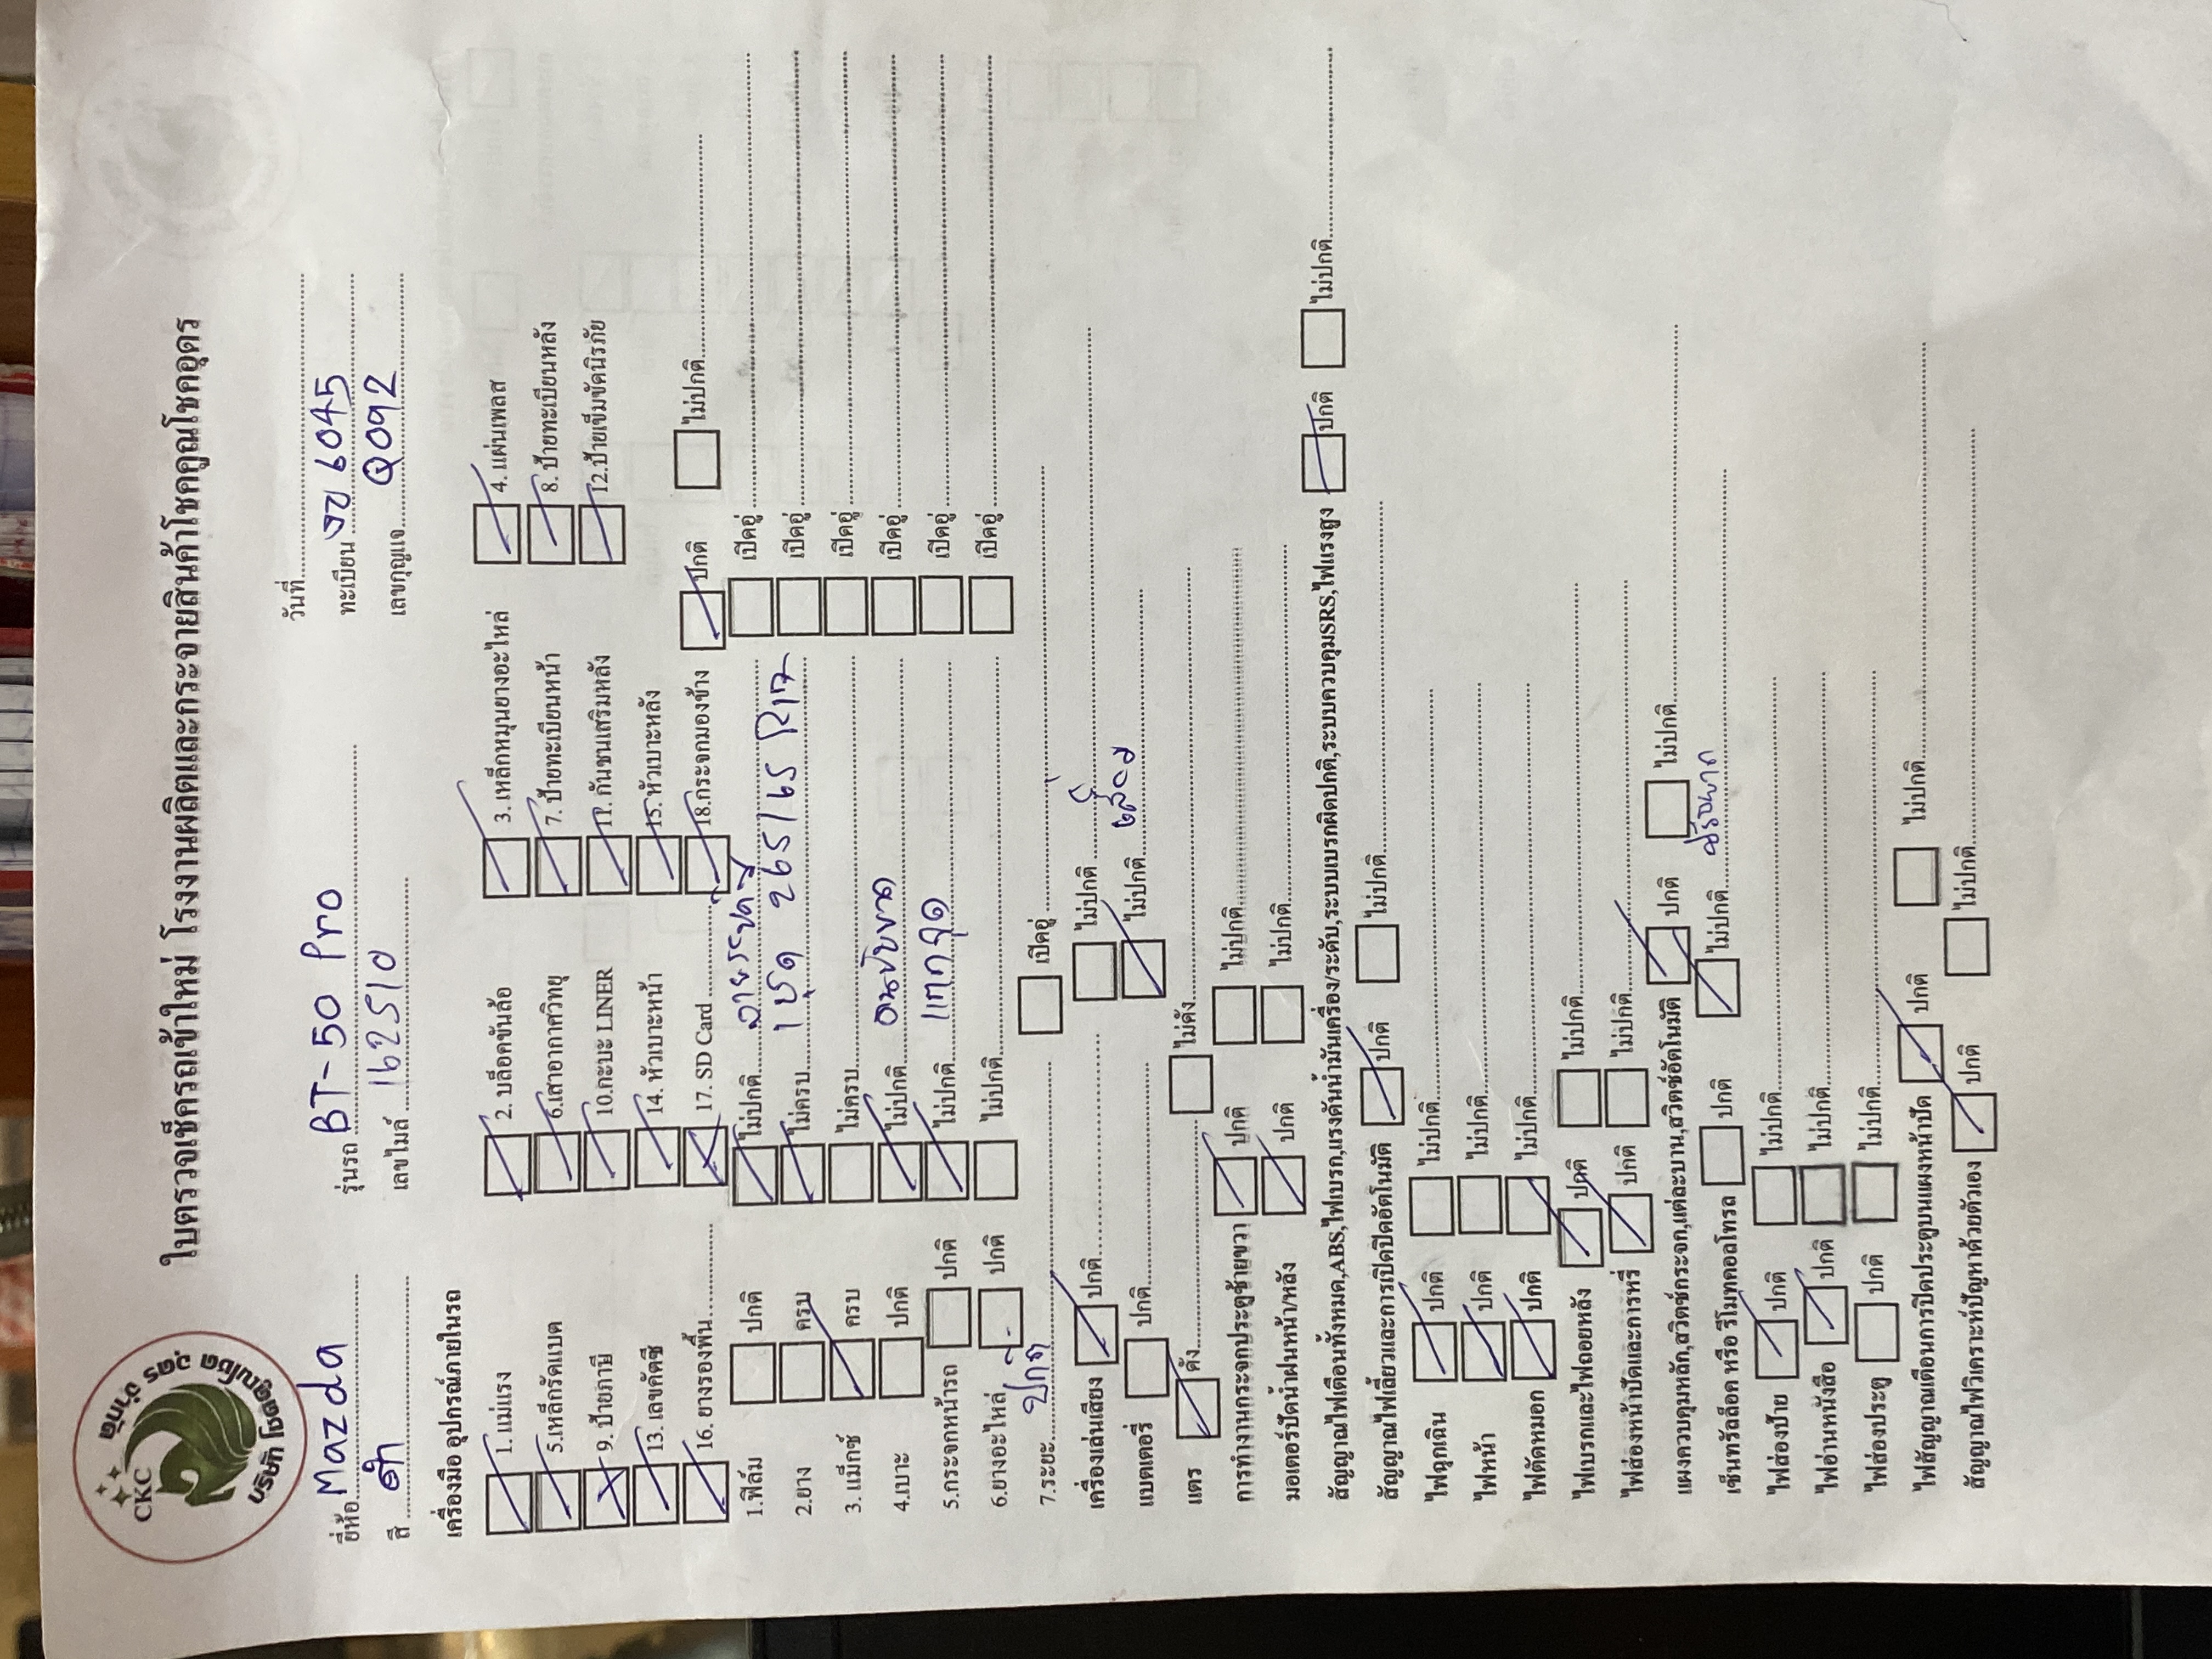 CKC
บริษัท โชคคูณโชค อุดร จำกัด
ใบตรวจเช็ครถเข้าใหม่ โรงงานผลิตและกระจายสินค้าโชคคูณโชคอุดร
วันที่
ยี่ห้อ Mazda รุ่นรถ BT-50 Pro ทะเบียน 6045
สี ดำ เลขไมล์ 162510 เลขกุญแจ Q092
เครื่องมือ อุปกรณ์ภายในรถ
1. แม่แรง 2. บล็อคขันล้อ 3. เหล็กหมุนยางอะไหล่ 4. แผ่นเพลส
5.เหล็กรัดแบต 6.เสาอากาศวิทยุ 7. ป้ายทะเบียนหน้า 8. ป้ายทะเบียนหลัง
9. ป้ายภาษี 10.กะบะ LINER 11. กันชนเสริมหลัง 12.ป้ายเข็มขัดนิรภัย
13. เลขคัดซี 14. หัวเบาะหน้า 15. หัวเบาะหลัง
16. ยางรองพื้น 17. SD Card 18.กระจกมองข้าง ปกติ ไม่ปกติ
1.ฟิล์ม ปกติ ไม่ปกติ เปิดอู่
2.ยาง ครบ ไม่ครบ 1 ชุด 265/65 R17 เปิดอู่
3. แม็กซ์ ครบ ไม่ครบ เปิดอู่
4.เบาะ ปกติ ไม่ปกติ เปิดอู่
5.กระจกหน้ารถ ปกติ ไม่ปกติ แตก เปิดอู่
6.ยางอะไหล่ ปกติ ไม่ปกติ เปิดอู่
7.ระยะ ปกติ เปิดอู่
เครื่องเล่นเสียง ปกติ ไม่ปกติ
แบตเตอรี่ ปกติ ไม่ปกติ เสื่อม
แตร ดัง ไม่ดัง
การทำงานกระจกประตูซ้ายขวา ปกติ ไม่ปกติ
มอเตอร์ปัดน้ำฝนหน้า/หลัง ปกติ ไม่ปกติ
สัญญาณไฟเตือนทั้งหมด,ABS,ไฟเบรก,แรงดันน้ำมันเครื่อง/ระดับ,ระบบเบรกผิดปกติ,ระบบควบคุมSRS,ไฟแรงสูง ปกติ ไม่ปกติ
สัญญาณไฟเลี้ยวและการเปิดปิดอัตโนมัติ ปกติ ไม่ปกติ
ไฟฉุกเฉิน ปกติ ไม่ปกติ
ไฟหน้า ปกติ ไม่ปกติ
ไฟตัดหมอก ปกติ ไม่ปกติ
ไฟเบรกและไฟถอยหลัง ปกติ ไม่ปกติ
ไฟส่องหน้าปัดและการหรี่ ปกติ ไม่ปกติ
แผงควบคุมหลัก,สวิตซ์กระจก,แต่ละบาน,สวิตซ์อัตโนมัติ ปกติ ไม่ปกติ
เซ็นทรัลล็อค หรือ รีโมทคอลโทรล ปกติ ไม่ปกติ
ไฟส่องป้าย ปกติ ไม่ปกติ
ไฟอ่านหนังสือ ปกติ ไม่ปกติ
ไฟส่องประตู ปกติ ไม่ปกติ
ไฟสัญญาณเตือนการปิดประตูบนแผงหน้าปัด ปกติ ไม่ปกติ
สัญญาณไฟวิเคราะห์ปัญหาด้วยตัวเอง ปกติ ไม่ปกติ